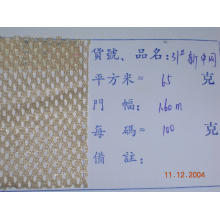 貨號、品名:31# 新中网
平方米= 65 克
門 幅: 1.60m
每 碼= 100 克
備 註:
11.12.2004